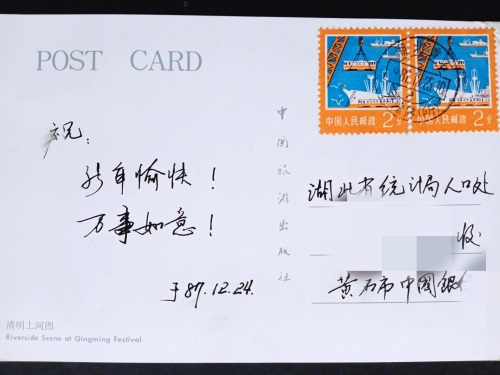 POST CARD
中国人民邮政 2分
中国人民邮政 2分
祝:
新年愉快!
万事如意!
于87.12.24.
中国旅游出版社
湖北省统计局人口处
收
黄石市中国银
清明上河图
Riverside Scene at Qingming Festival